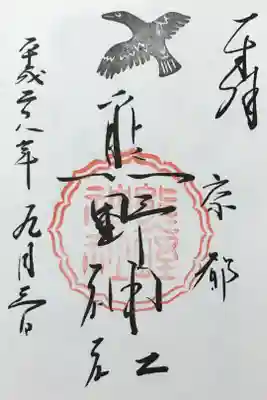 奉拝
京都
熊野神社
平成二八年九月三日